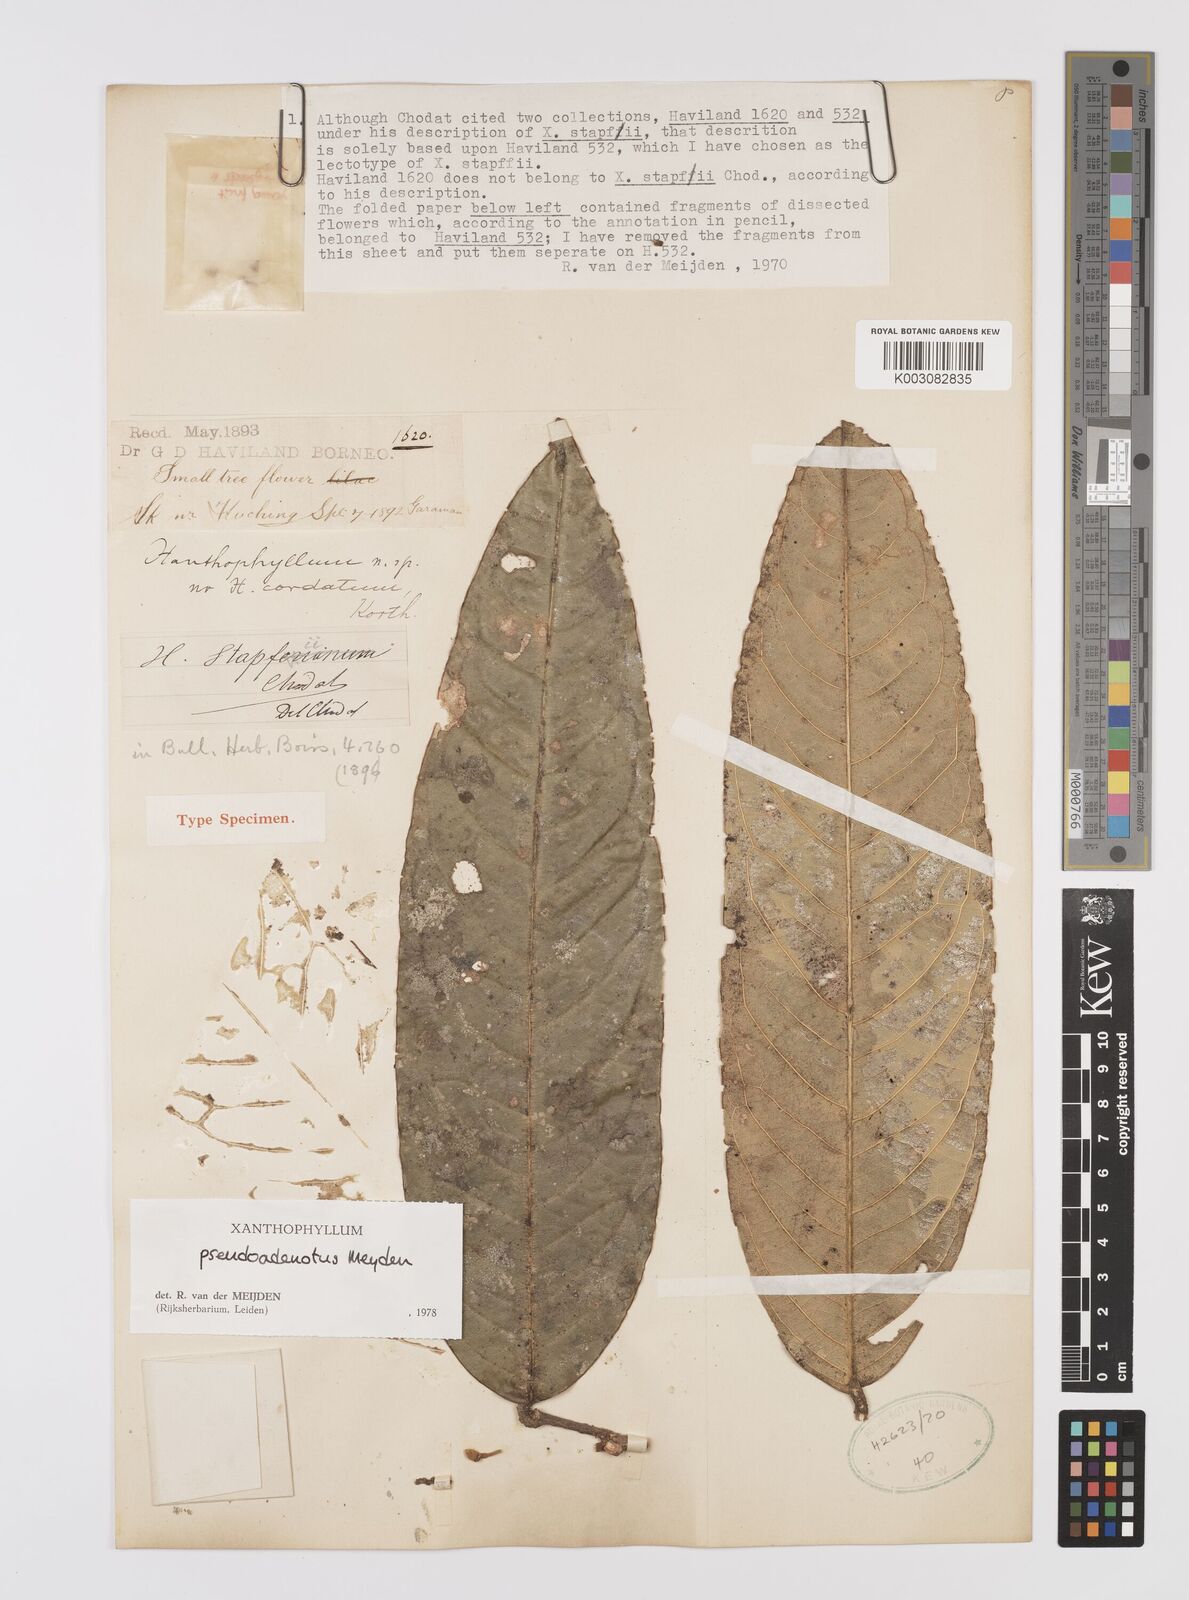 1. Although Chodat cited two collections, Haviland 1620 and 532,
under his description of X. stapf/ii, that descrition
is solely based upon Haviland 532, which I have chosen as the
lectotype of X. stapffii.
Haviland 1620 does not belong to X. stapf/ii Chod., according
to his description.
The folded paper below left contained fragments of dissected
flowers which, according to the annotation in pencil,
belonged to Haviland 532; I have removed the fragments from
this sheet and put them seperate on H.532.
R. van der Meijden , 1970
young fruit
ROYAL BOTANIC GARDENS KEW
K003082835
Recd. May.1893
1620.
Dr G D HAVILAND BORNEO.
Small tree flower lilac
Sk nr Kuching 1892
Xanthophyllum n. sp.
no X. cordatum,
Korth.
X. Stapfii
Chodat
Det Chodat
in Bull. Herb. Boiss. 4.260
(1896
Type Specimen.
XANTHOPHYLLUM
pseudoadenotus Meyden
det. R. van der MEIJDEN
(Rijksherbarium, Leiden)
, 1978
BOTANIC GARDENS
H2623/70
40
KEW
inches
centimeters
Density
Don Williams
M000766
Royal Botanic Gardens
Kew
copyright reserved
0 1 2 3 4 5 6 7 8 9 10
cm